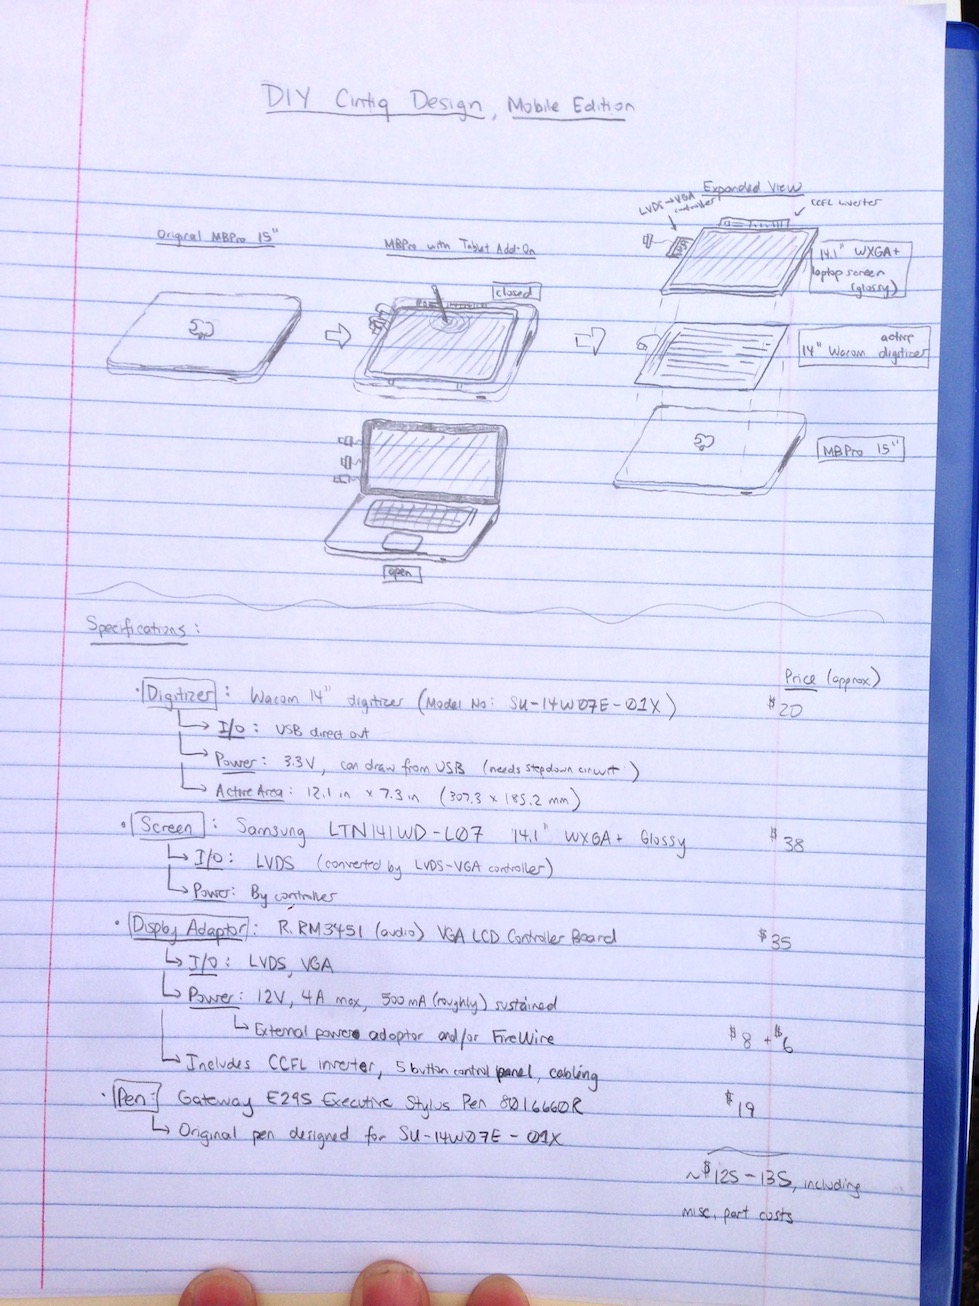 DIY Cintiq Design, Mobile Edition
Expanded View
LVDS→VGA
controller
CCFL Inverter
Original MBPro 15"
MBPro with Tablet Add-On
14.1" WXGA+
laptop screen
(glossy)
closed
active
14" Wacom digitizer
MBPro 15"
open
Specifications:
Price (approx)
• Digitizer: Wacom 14" digitizer (Model No: SU-14W07E-01X) $20
↳ I/O: USB direct out
↳ Power: 3.3V, can draw from USB (needs stepdown circuit)
↳ Active Area: 12.1 in x 7.3 in (307.3 x 185.2 mm)
• Screen: Samsung LTN141WD-L07 14.1" WXGA+ Glossy $38
↳ I/O: LVDS (converted by LVDS-VGA controller)
↳ Power: By controller
• Display Adaptor: R.RM3451 (audio) VGA LCD Controller Board $35
↳ I/O: LVDS, VGA
↳ Power: 12V, 4A max, 500mA (roughly) sustained
↳ External power adaptor and/or FireWire $8 + $6
↳ Includes CCFL inverter, 5 button control panel, cabling
• Pen: Gateway E295 Executive Stylus Pen 8016660R $19
↳ Original pen designed for SU-14W07E-01X
~$125-135, including
misc. part costs